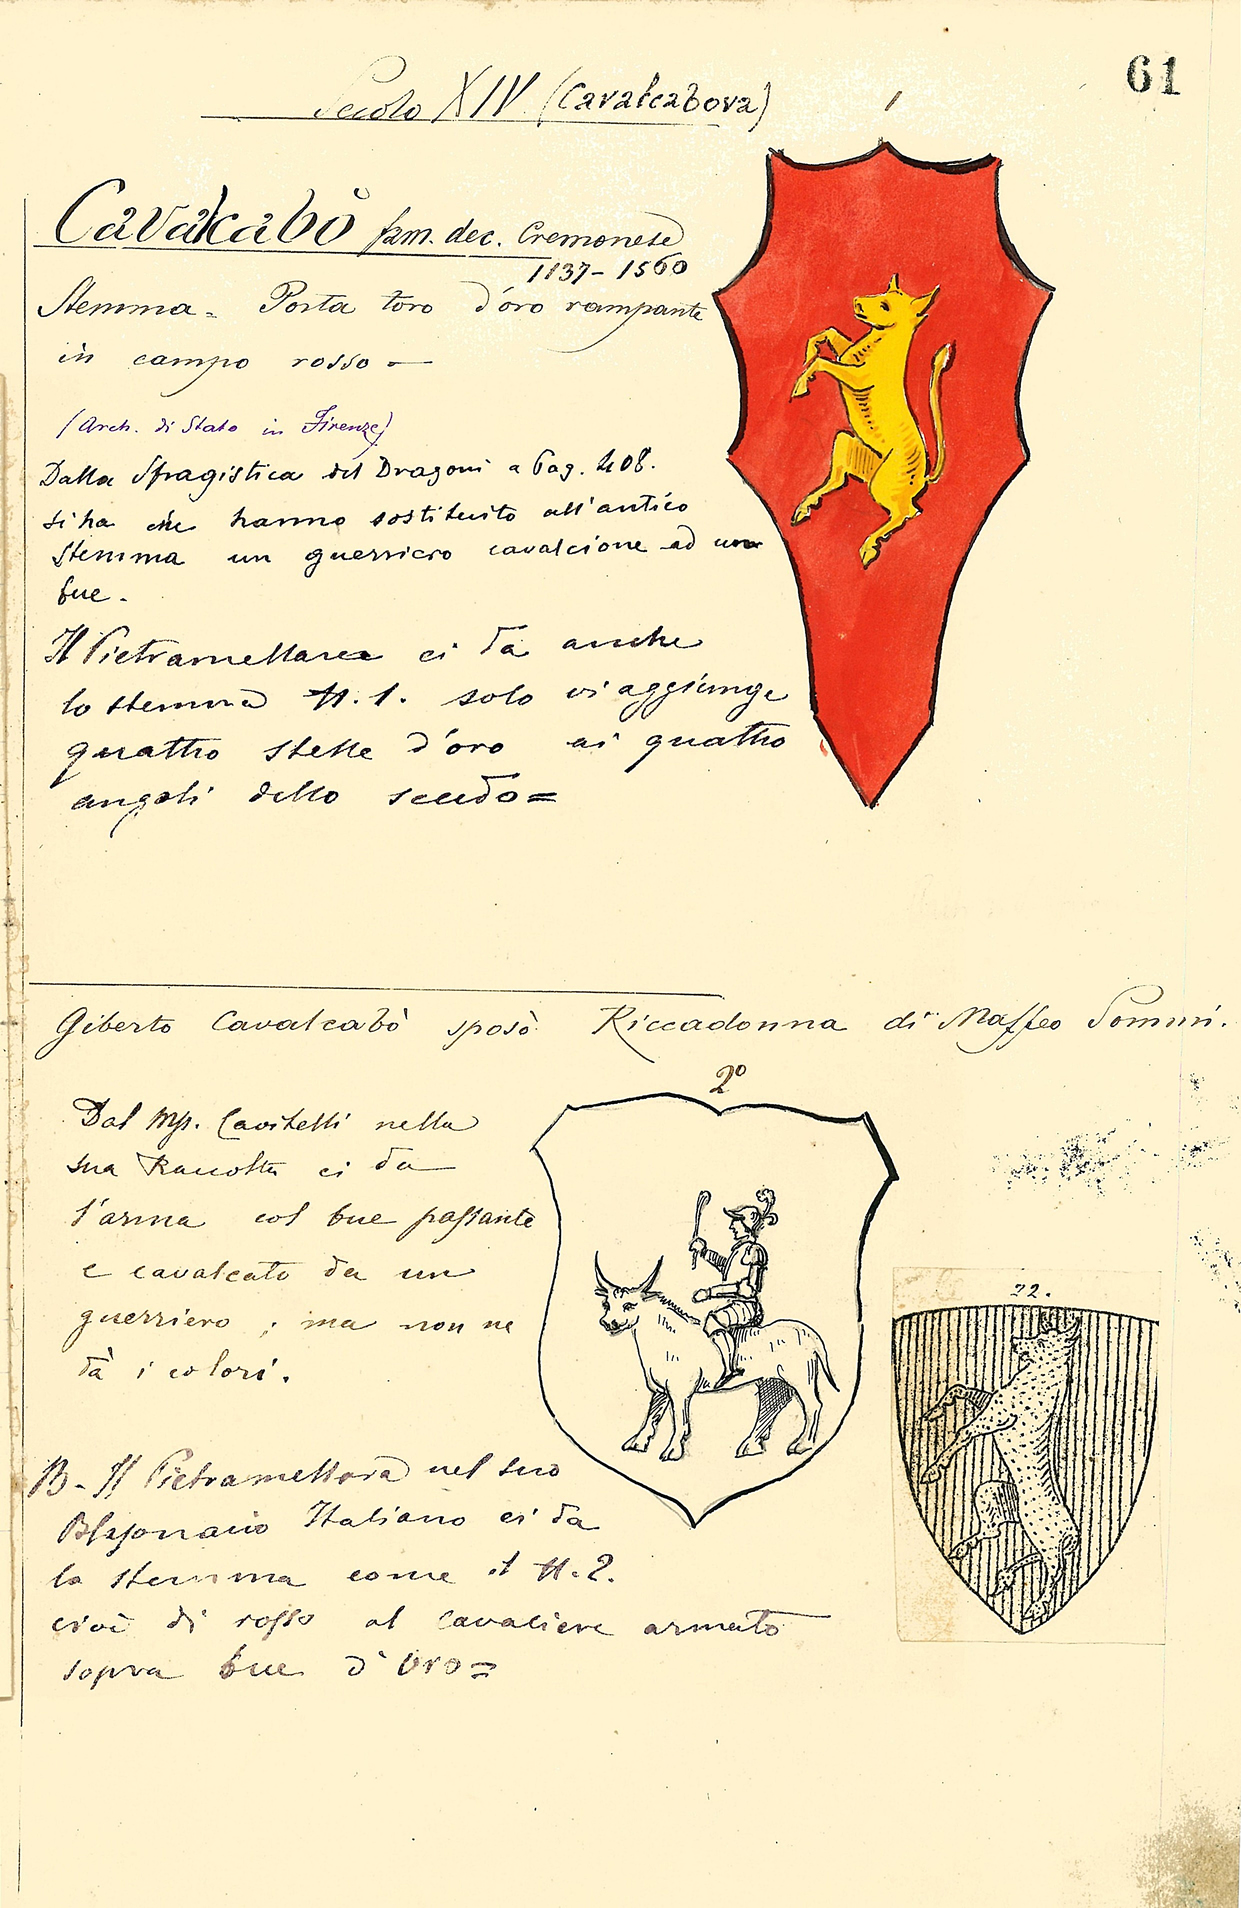 61
Secolo XIV (Cavalcabova)
1
Cavalcabò fam. dec. Cremonese
1137-1560
Stemma - Porta toro d'oro rampante
in campo rosso -
(Arch. di Stato in Firenze)
Dalla Sfragistica del Dragoni a Pag. 408.
si ha che hanno sostituito all'antico
stemma un guerriero cavalcione ad un
bue.
Il Pietramellara ci da anche
lo stemma N. 1. solo vi aggiunge
quattro stelle d'oro ai quattro
angoli dello scudo=
Giberto Cavalcabò sposò Riccadonna di Maffeo Sommi.
2º
Dal Mp. Cavitelli nella
sua Raccolta ci da
l'arma col bue passante
e cavalcato da un
guerriero ; ma non ne
dà i colori.
22.
B- Il Pietramellara nel suo
Blasonario Italiano ci da
lo stemma come il N. 2.
cioè di rosso al cavaliere armato
sopra bue d'oro=